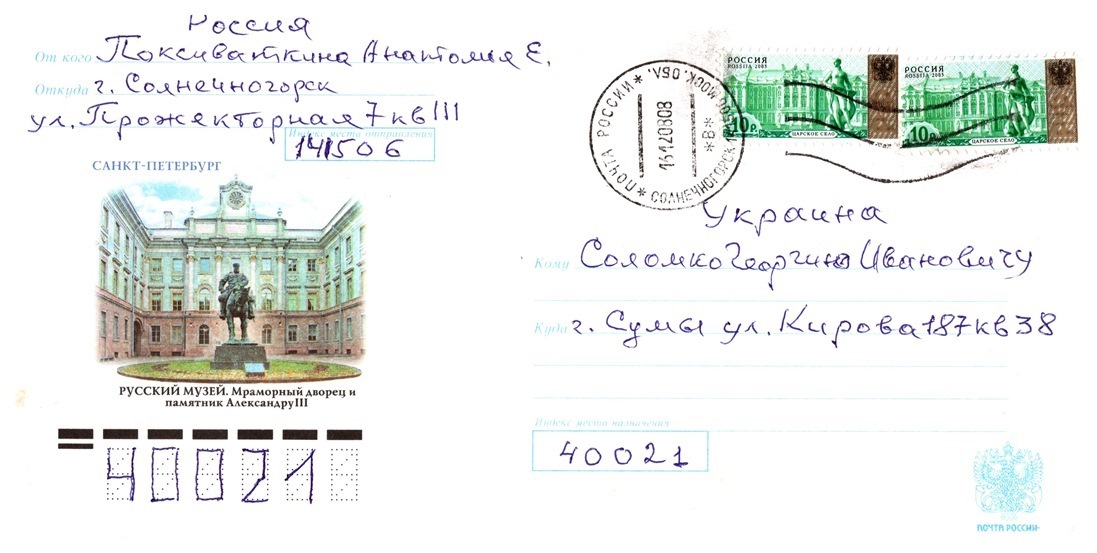 Россия
От кого Поксиваткина Анатолия Е.
Откуда г. Солнечногорск
ул. Прожекторная 7 кв III
Индекс места отправления
141506
САНКТ-ПЕТЕРБУРГ
РУССКИЙ МУЗЕЙ. Мраморный дворец и
памятник Александру III
40021
ПОЧТА РОССИИ
161208 08
*В*
СОЛНЕЧНОГОРСК
МОСК. ОБЛ.
РОССИЯ
ROSSIJA 2003
10 р.
ЦАРСКОЕ СЕЛО
РОССИЯ
ROSSIJA 2003
10 р.
ЦАРСКОЕ СЕЛО
Украина
Кому Соломко Георгию Ивановичу
Куда г. Сумы ул. Кирова 187 кв 38
Индекс места назначения
40021
ПОЧТА РОССИИ